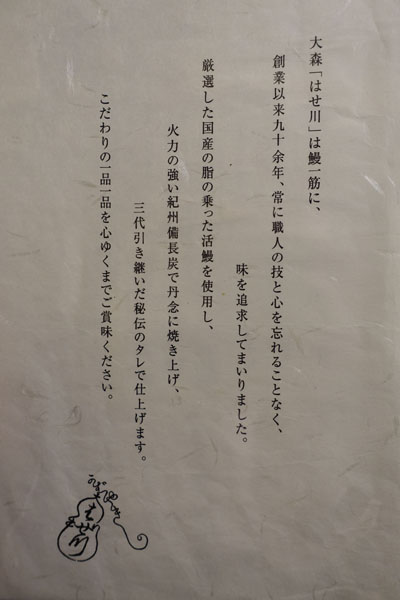 大森「はせ川」は鰻一筋に、
創業以来九十余年、常に職人の技と心を忘れることなく、
味を追求してまいりました。
厳選した国産の脂の乗った活鰻を使用し、
火力の強い紀州備長炭で丹念に焼き上げ、
三代引き継いだ秘伝のタレで仕上げます。
こだわりの一品一品を心ゆくまでご賞味ください。
はせ川